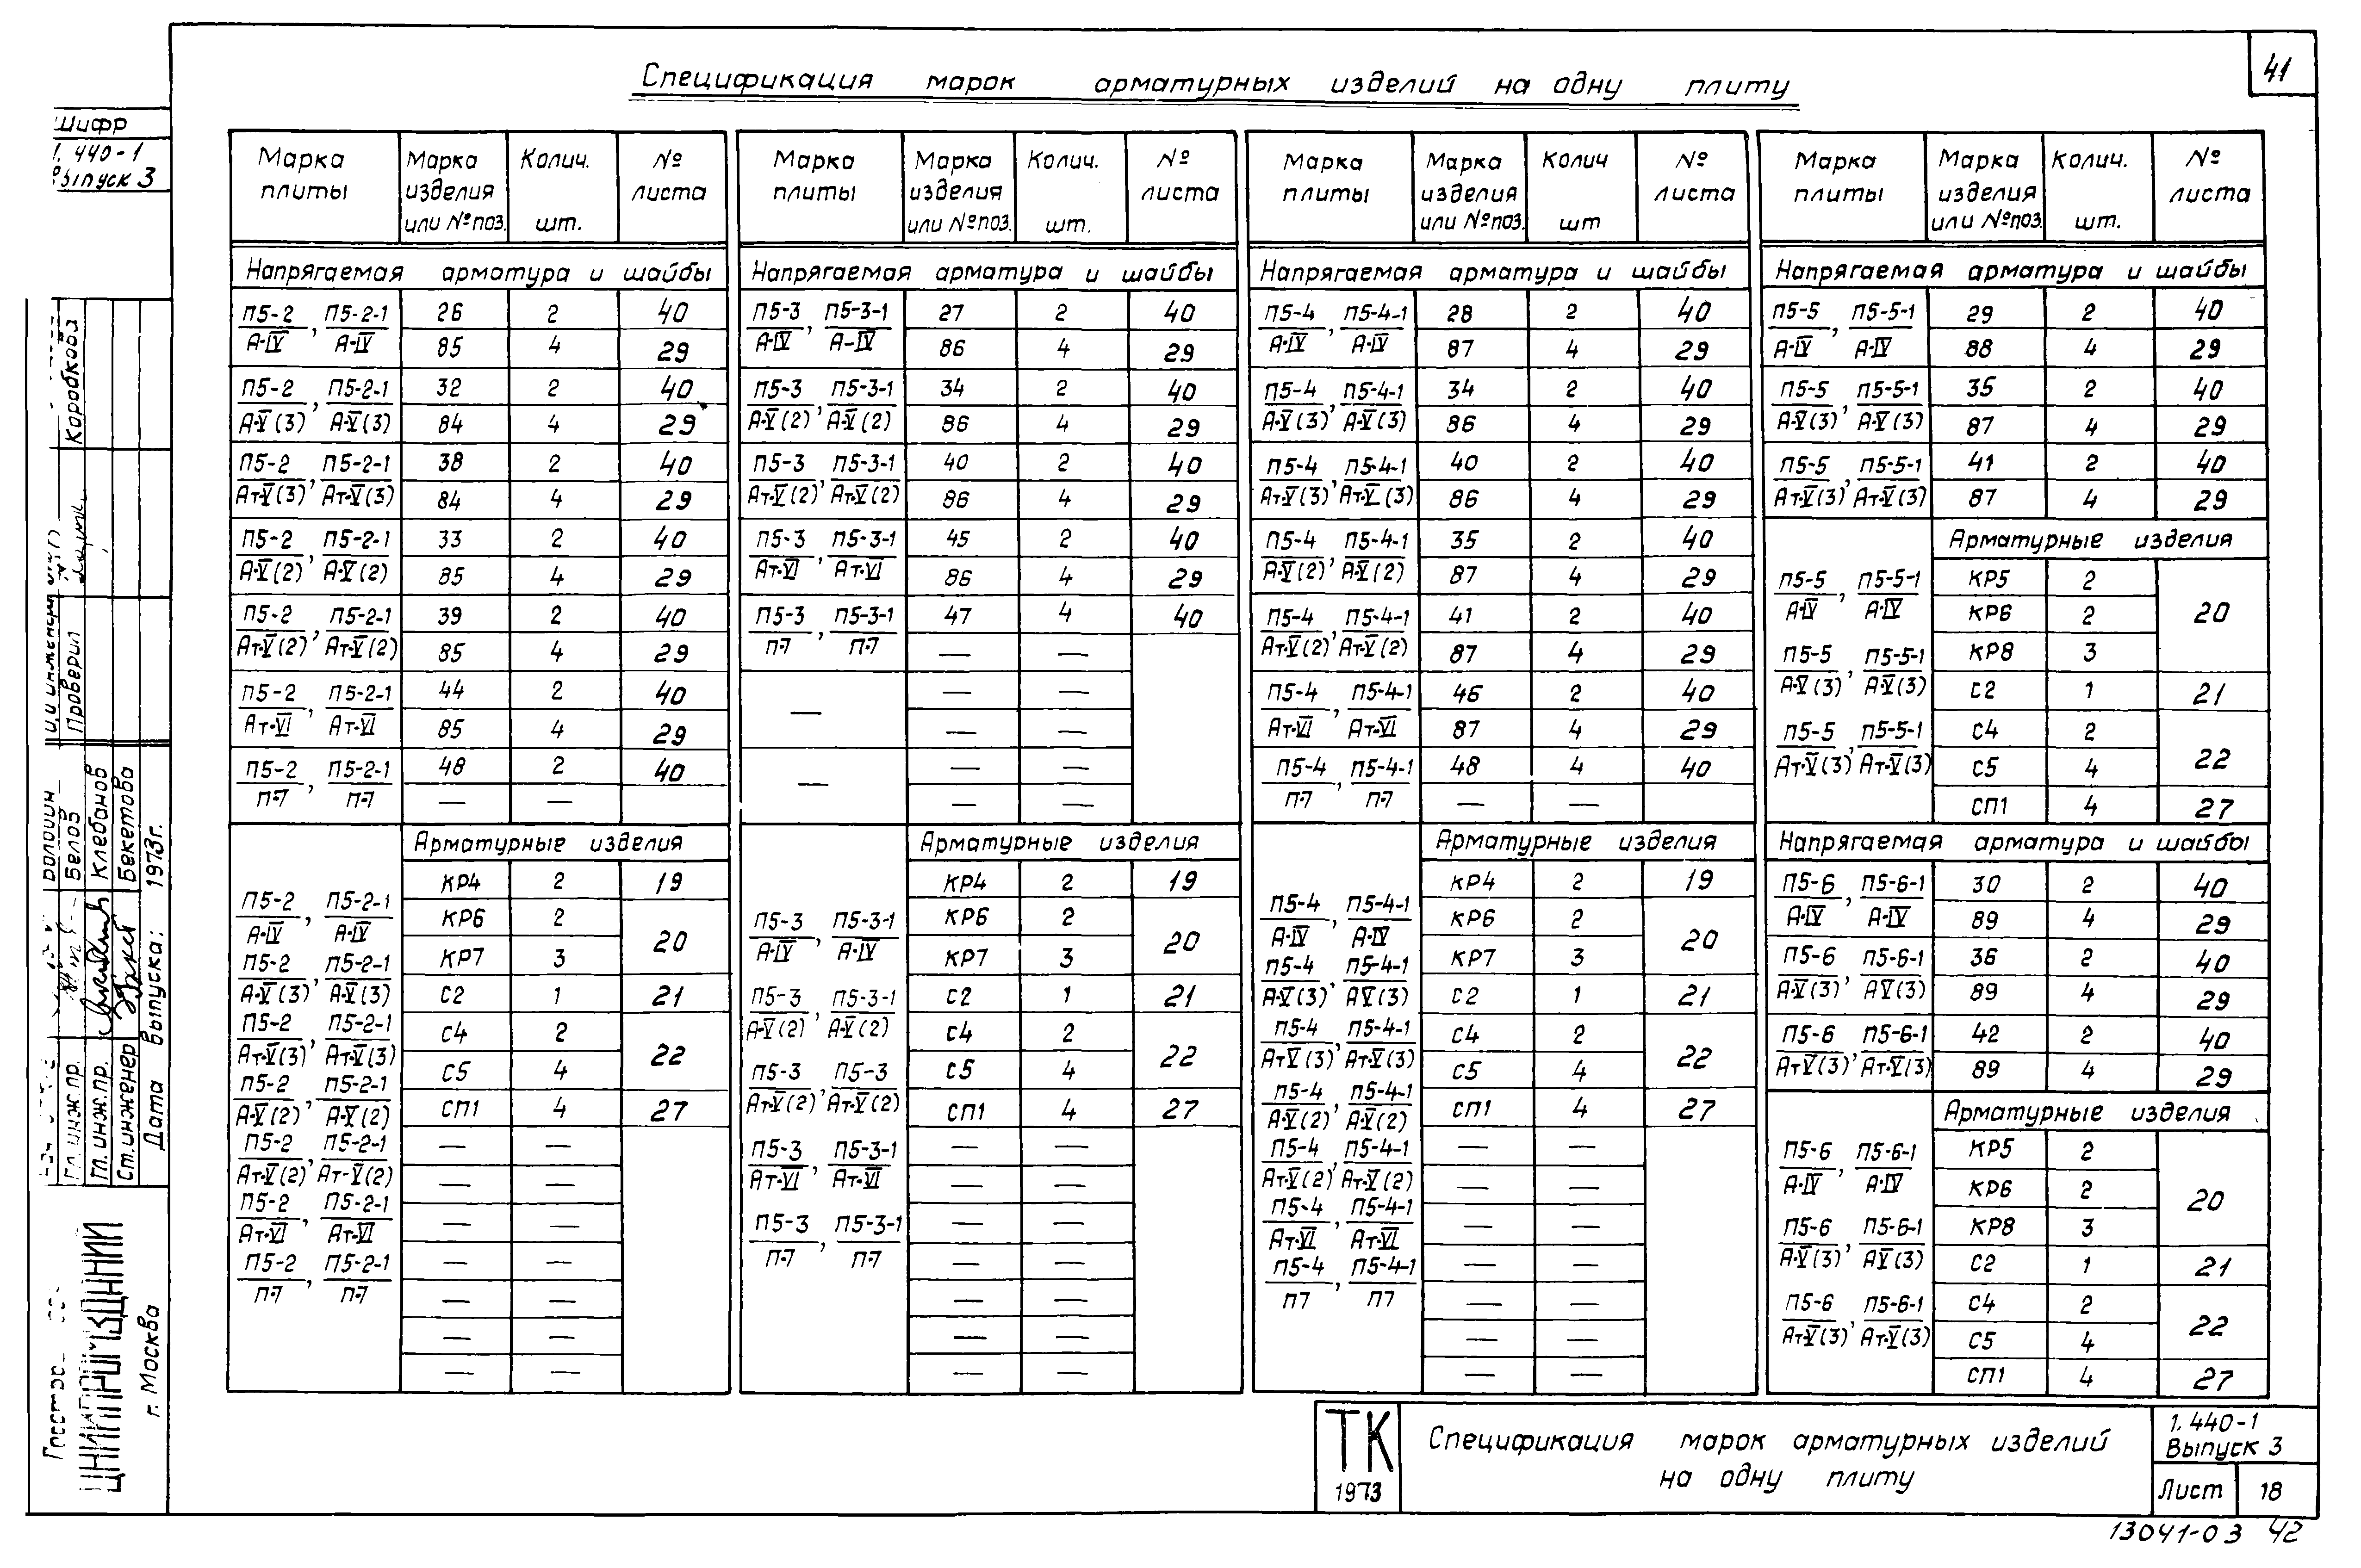 41
Спецификация марок арматурных изделий на одну плиту
Шифр
1.440-1
Выпуск 3
Марка плиты | Марка изделия или №поз. | Колич. шт. | № листа
Напрягаемая арматура и шайбы
П5-2/А-IV, П5-2-1/А-IV | 26 | 2 | 40
85 | 4 | 29
П5-2/А-V(3), П5-2-1/А-V(3) | 32 | 2 | 40
84 | 4 | 29
П5-2/Ат-V(3), П5-2-1/Ат-V(3) | 38 | 2 | 40
84 | 4 | 29
П5-2/А-V(2), П5-2-1/А-V(2) | 33 | 2 | 40
85 | 4 | 29
П5-2/Ат-V(2), П5-2-1/Ат-V(2) | 39 | 2 | 40
85 | 4 | 29
П5-2/Ат-VI, П5-2-1/Ат-VI | 44 | 2 | 40
85 | 4 | 29
П5-2/П-7, П5-2-1/П-7 | 48 | 2 | 40
— | —
Арматурные изделия
П5-2/А-IV, П5-2-1/А-IV
П5-2/А-V(3), П5-2-1/А-V(3)
П5-2/Ат-V(3), П5-2-1/Ат-V(3)
П5-2/А-V(2), П5-2-1/А-V(2)
П5-2/Ат-V(2), П5-2-1/Ат-V(2)
П5-2/Ат-VI, П5-2-1/Ат-VI
П5-2/П-7, П5-2-1/П-7
КР4 | 2 | 19
КР6 | 2 | 20
КР7 | 3
С2 | 1 | 21
С4 | 2 | 22
С5 | 4
СП1 | 4 | 27
— | —
— | —
— | —
— | —
— | —
— | —
— | —
Марка плиты | Марка изделия или №поз. | Колич. шт. | № листа
Напрягаемая арматура и шайбы
П5-3/А-IV, П5-3-1/А-IV | 27 | 2 | 40
86 | 4 | 29
П5-3/А-V(2), П5-3-1/А-V(2) | 34 | 2 | 40
86 | 4 | 29
П5-3/Ат-V(2), П5-3-1/Ат-V(2) | 40 | 2 | 40
86 | 4 | 29
П5-3/Ат-VI, П5-3-1/Ат-VI | 45 | 2 | 40
86 | 4 | 29
П5-3/П-7, П5-3-1/П-7 | 47 | 4 | 40
— | —
— | — | —
— | —
— | — | —
— | —
Арматурные изделия
П5-3/А-IV, П5-3-1/А-IV
П5-3/А-V(2), П5-3-1/А-V(2)
П5-3/Ат-V(2), П5-3/Ат-V(2)
П5-3/Ат-VI, П5-3-1/Ат-VI
П5-3/П-7, П5-3-1/П-7
КР4 | 2 | 19
КР6 | 2 | 20
КР7 | 3
С2 | 1 | 21
С4 | 2 | 22
С5 | 4
СП1 | 4 | 27
— | —
— | —
— | —
— | —
— | —
— | —
— | —
Марка плиты | Марка изделия или №поз. | Колич шт | № листа
Напрягаемая арматура и шайбы
П5-4/А-IV, П5-4-1/А-IV | 28 | 2 | 40
87 | 4 | 29
П5-4/А-V(3), П5-4-1/А-V(3) | 34 | 2 | 40
86 | 4 | 29
П5-4/Ат-V(3), П5-4-1/Ат-V(3) | 40 | 2 | 40
86 | 4 | 29
П5-4/А-V(2), П5-4-1/А-V(2) | 35 | 2 | 40
87 | 4 | 29
П5-4/Ат-V(2), П5-4-1/Ат-V(2) | 41 | 2 | 40
87 | 4 | 29
П5-4/Ат-VI, П5-4-1/Ат-VI | 46 | 2 | 40
87 | 4 | 29
П5-4/П-7, П5-4-1/П-7 | 48 | 4 | 40
— | —
Арматурные изделия
П5-4/А-IV, П5-4-1/А-IV
П5-4/А-V(3), П5-4-1/АV(3)
П5-4/АтV(3), П5-4-1/Ат-V(3)
П5-4/А-V(2), П5-4-1/А-V(2)
П5-4/Ат-V(2), П5-4-1/Ат-V(2)
П5-4/Ат-VI, П5-4-1/Ат-VI
П5-4/П7, П5-4-1/П7
КР4 | 2 | 19
КР6 | 2 | 20
КР7 | 3
С2 | 1 | 21
С4 | 2 | 22
С5 | 4
СП1 | 4 | 27
— | —
— | —
— | —
— | —
— | —
— | —
— | —
Марка плиты | Марка изделия или №поз. | Колич. шт. | № листа
Напрягаемая арматура и шайбы
П5-5/А-IV, П5-5-1/А-IV | 29 | 2 | 40
88 | 4 | 29
П5-5/А-V(3), П5-5-1/А-V(3) | 35 | 2 | 40
87 | 4 | 29
П5-5/Ат-V(3), П5-5-1/Ат-V(3) | 41 | 2 | 40
87 | 4 | 29
Арматурные изделия
П5-5/А-IV, П5-5-1/А-IV
П5-5/А-V(3), П5-5-1/А-V(3)
П5-5/Ат-V(3), П5-5-1/Ат-V(3)
КР5 | 2 | 20
КР6 | 2
КР8 | 3
С2 | 1 | 21
С4 | 2 | 22
С5 | 4
СП1 | 4 | 27
Напрягаемая арматура и шайбы
П5-6/А-IV, П5-6-1/А-IV | 30 | 2 | 40
89 | 4 | 29
П5-6/А-V(3), П5-6-1/АV(3) | 36 | 2 | 40
89 | 4 | 29
П5-6/АтV(3), П5-6-1/Ат-V(3) | 42 | 2 | 40
89 | 4 | 29
Арматурные изделия
П5-6/А-IV, П5-6-1/А-IV
П5-6/А-V(3), П5-6-1/АV(3)
П5-6/Ат-V(3), П5-6-1/Ат-V(3)
КР5 | 2 | 20
КР6 | 2
КР8 | 3
С2 | 1 | 21
С4 | 2 | 22
С5 | 4
СП1 | 4 | 27
Коробкова
Проверил
Белов
Клебанов
Бекетова
Гл.инж.пр.
Гл.инж.пр.
Ст.инженер
Дата выпуска: 1973г.
г. Москва
ТК
1973
Спецификация марок арматурных изделий
на одну плиту
1.440-1
Выпуск 3
Лист 18
13041-03 42